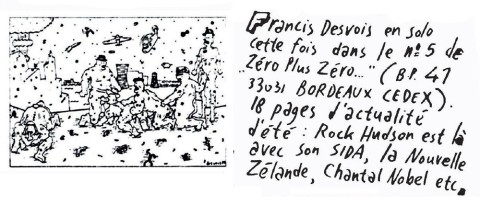 Francis Desvois en solo
cette fois dans le nº5 de
"Zéro Plus Zéro..." (B.P. 47
33031 BORDEAUX CEDEX).
18 pages d'actualité
d'été : Rock Hudson est là
avec son SIDA, la Nouvelle
Zélande, Chantal Nobel etc.